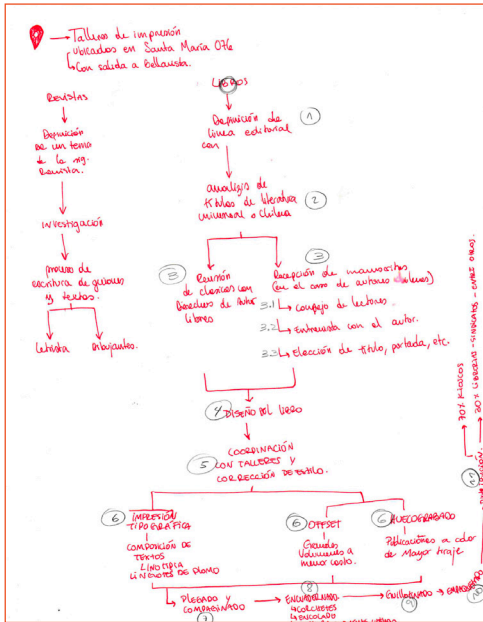 Talleres de impresión
ubicados en Santa María 076
Con salida a Bellavista.
Revistas
Definición
de un tema
de la sig.
Revista.
investigación
proceso de
escritura de guiones
y textos.
Letrista
Dibujantes.
LIBROS
Definición de
línea editorial
con
1
analisis de
titulos de literatura
universal o chilena
2
3
Reunión
de clasicos con
Derechos de Autor
libres
3
Recepción de manuscritos
(en el caso de autores chilenos)
3.1 consejo de lectores.
3.2 Entrevista con el autor.
3.3 Elección de título, portada, etc.
4 DISEÑO DEL LIBRO
5
COORDINACIÓN
CON TALLERES Y
CORRECCIÓN DE ESTILO.
6 IMPRESIÓN
TIPOGRÁFICA
COMPOSICIÓN DE
TEXTOS
LINOTIPIA
LINGOTES DE PLOMO
6 OFFSET
Grandes
Volumenes a
menor costo.
6 HUECOGRABADO
Publicaciones a color
de Mayor tiraje
PLEGADO Y
COMPAGINADO
7
8
ENCUADERNADO
CORCHETES
ENCOLADO
GUILLOTINADO
9
EMPAQUETADO
10
11
DISTRIBUCIÓN.
70% KIOSCOS
30% LIBRERIAS - SINDICATOS - ENTRE OTROS.